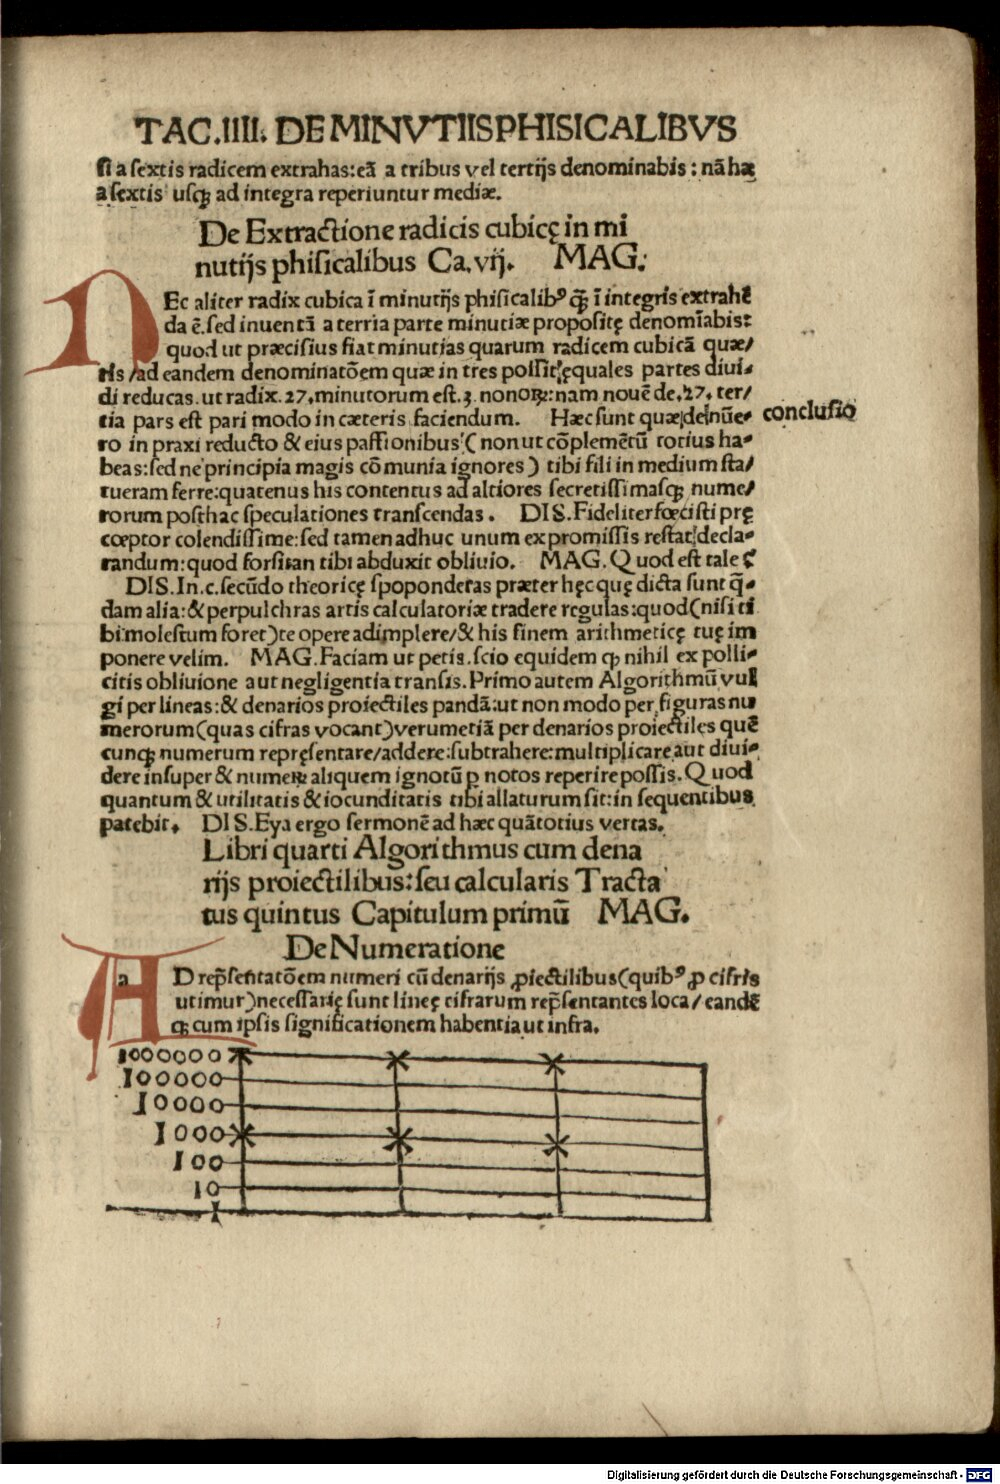 TAC.IIII. DE MINVTIIS PHISICALIBVS
si a sextis radicem extrahas: eā a tribus vel tertijs denominabis: nā hæ
a sextis usqꝫ ad integra reperiuntur mediæ.
De Extractione radicis cubicę in mi
nutijs phisicalibus Ca.vij. MAG.
NEc aliter radix cubica ī minutijs phisicalibꝰ q̄ꝫ ī integris extrahē
da ē. sed inuentā a terria parte minutiæ propositę denomīabis:
quod ut præcisius fiat minutias quarum radicem cubicā quæ/
ris /ad eandem denominatōem quæ in tres possit ęquales partes diui-
di reducas. ut radix .27. minutorum est .3. nonoꝝ: nam nouē de .27. ter/
tia pars est pari modo in cæteris faciendum. Hæc sunt quæ de nūe-
conclusio
ro in praxi reducto & eius passionibus (non ut cōplemētū totius ha-
beas: sed ne principia magis cōmunia ignores) tibi fili in medium sta/
tueram ferre: quatenus his contentus ad altiores secretissimasqꝫ nume/
rorum posthac speculationes transcendas. DIS. Fideliter fœcisti prę
cœptor colendissime: sed tamen adhuc unum ex promissis restat decla-
randum: quod forsitan tibi abduxit obliuio. MAG. Quod est tale?
DIS. In .c. secūdo theoricę spoponderas præter hęc quę dicta sunt q̄-
dam alia: & perpulchras artis calculatoriæ tradere regulas: quod (nisi ti
bi molestum foret) te opere adimplere/ & his finem arithmeticę tuę im
ponere velim. MAG. Faciam ut petis. scio equidem ꝙ nihil ex polli-
citis obliuione aut negligentia transis. Primo autem Algorithmū vul
gi per lineas: & denarios proiectiles pandā: ut non modo per figuras nu
merorum (quas cifras vocant) verumetiā per denarios proiectiles quē
cunqꝫ numerum repręsentare/ addere: subtrahere: multiplicare aut diui-
dere insuper & numeꝝ aliquem ignotū ꝑ notos reperire possis. Quod
quantum & utilitatis & iocunditatis tibi allaturum sit: in sequentibus
patebit. DIS. Eya ergo sermonē ad hæc quātotius vertas.
Libri quarti Algorithmus cum dena
rijs proiectilibus: seu calcularis Tracta
tus quintus Capitulum primū MAG.
De Numeratione
a
AD rep̄sentatōem numeri cū denarijs ꝓiectilibus (quibꝰ ꝓ cifris
utimur) necessarię sunt lineę cifrarum rep̄sentantes loca/ eandē
qꝫ cum ipsis significationem habentia ut infra.
1000000
100000
10000
1000
100
10
1
Digitalisierung gefördert durch die Deutsche Forschungsgemeinschaft - DFG